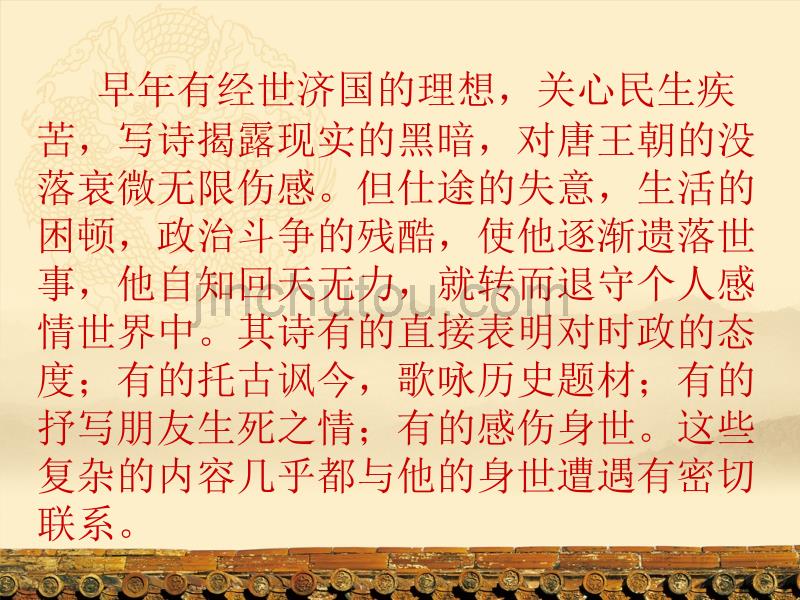 早年有经世济国的理想，关心民生疾
苦，写诗揭露现实的黑暗，对唐王朝的没
落衰微无限伤感。但仕途的失意，生活的
困顿，政治斗争的残酷，使他逐渐遗落世
事，他自知回天无力，就转而退守个人感
jinchutou.com
情世界中。其诗有的直接表明对时政的态
度；有的托古讽今，歌咏历史题材；有的
抒写朋友生死之情；有的感伤身世。这些
复杂的内容几乎都与他的身世遭遇有密切
联系。